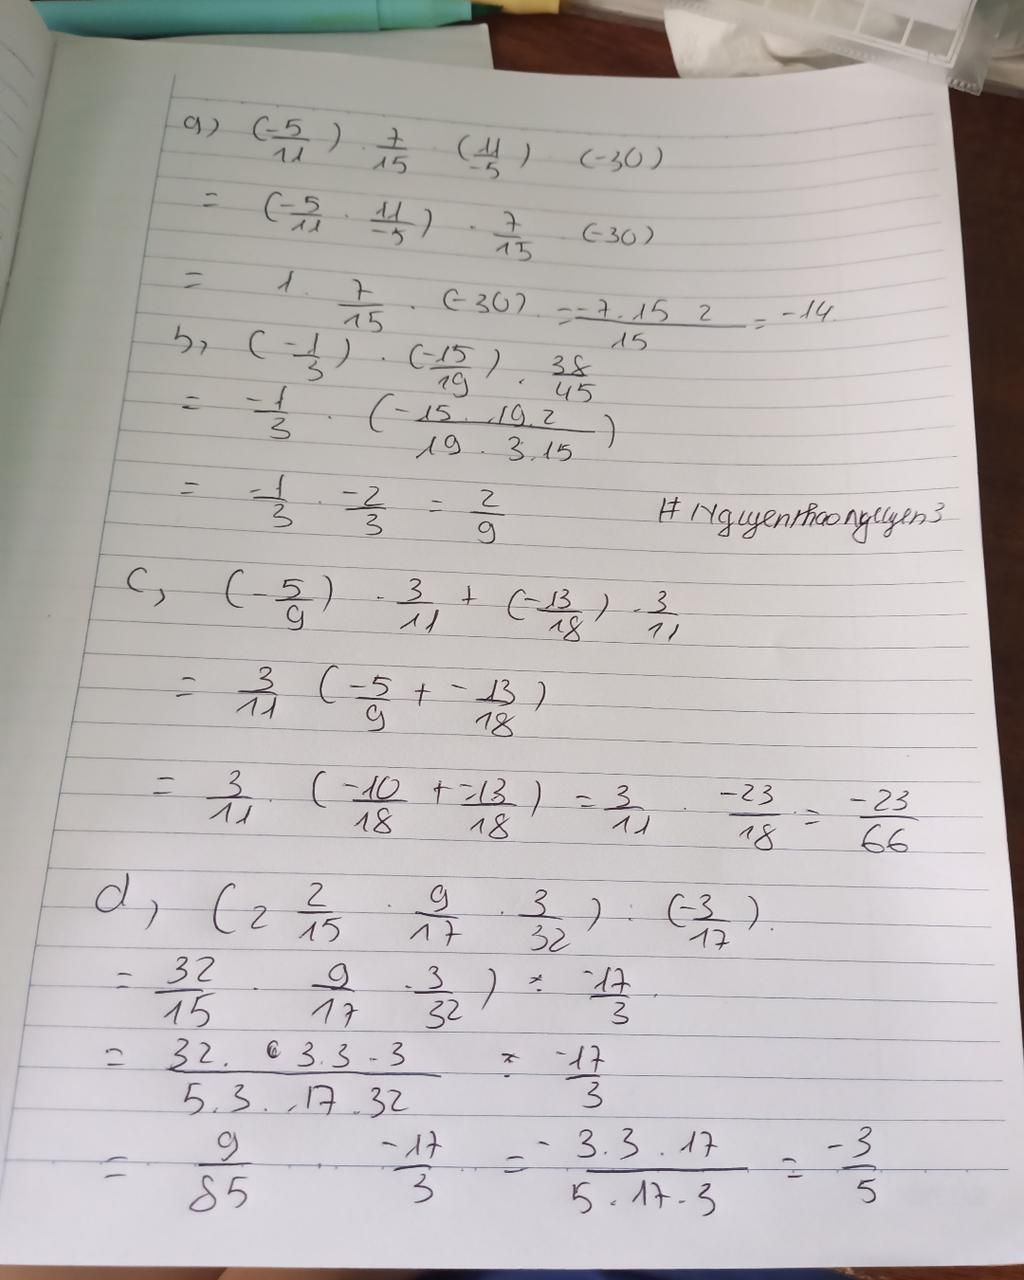 a) (-5/11) . 7/15 . (11/-5) (-30)
= (-5/11 . 11/-5) . 7/15 (-30)
= 1 . 7/15 . (-30) = -7.15 2/15 = -14
b, (-1/3) . (-15/19) . 38/45
= -1/3 . (-15 . 19.2/19 . 3.15)
= -1/3 . -2/3 = 2/9 # Nguyenthaonguyen3
c, (-5/9) . 3/11 + (-13/18) . 3/11
= 3/11 (-5/9 + -13/18)
= 3/11 . (-10/18 + -13/18) = 3/11 . -23/18 = -23/66
d, (2 2/15 . 9/17 . 3/32) : (-3/17).
= 32/15 . 9/17 . 3/32) : -17/3
= 32. 3.3.3/5.3.17.32 : -17/3
= 9/85 -17/3 = - 3.3.17/5.17.3 = -3/5